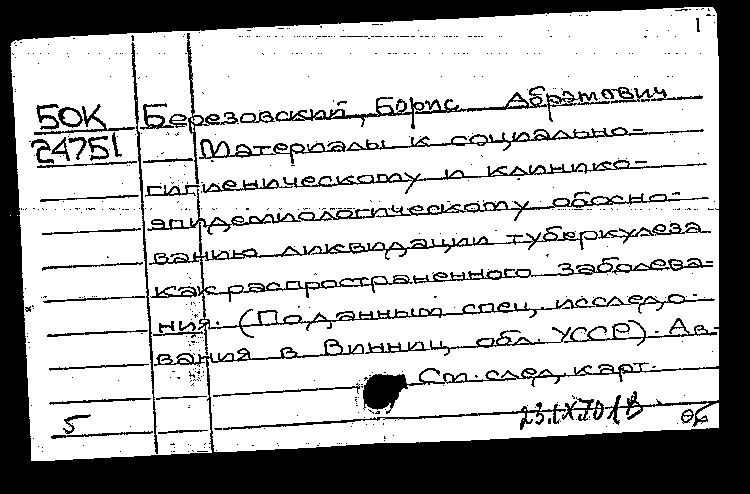 1
БОК Березовский, Борис Абрамович
24751 Материалы к социально-
гигиеническому и клинико-
эпидемиологическому обосно-
ванию ликвидации туберкулеза
как распространенного заболева-
ния. (По данным спец. исследо-
вания в Винниц. обл. УССР). Ав-
См. след. карт.
5 23.IX.70